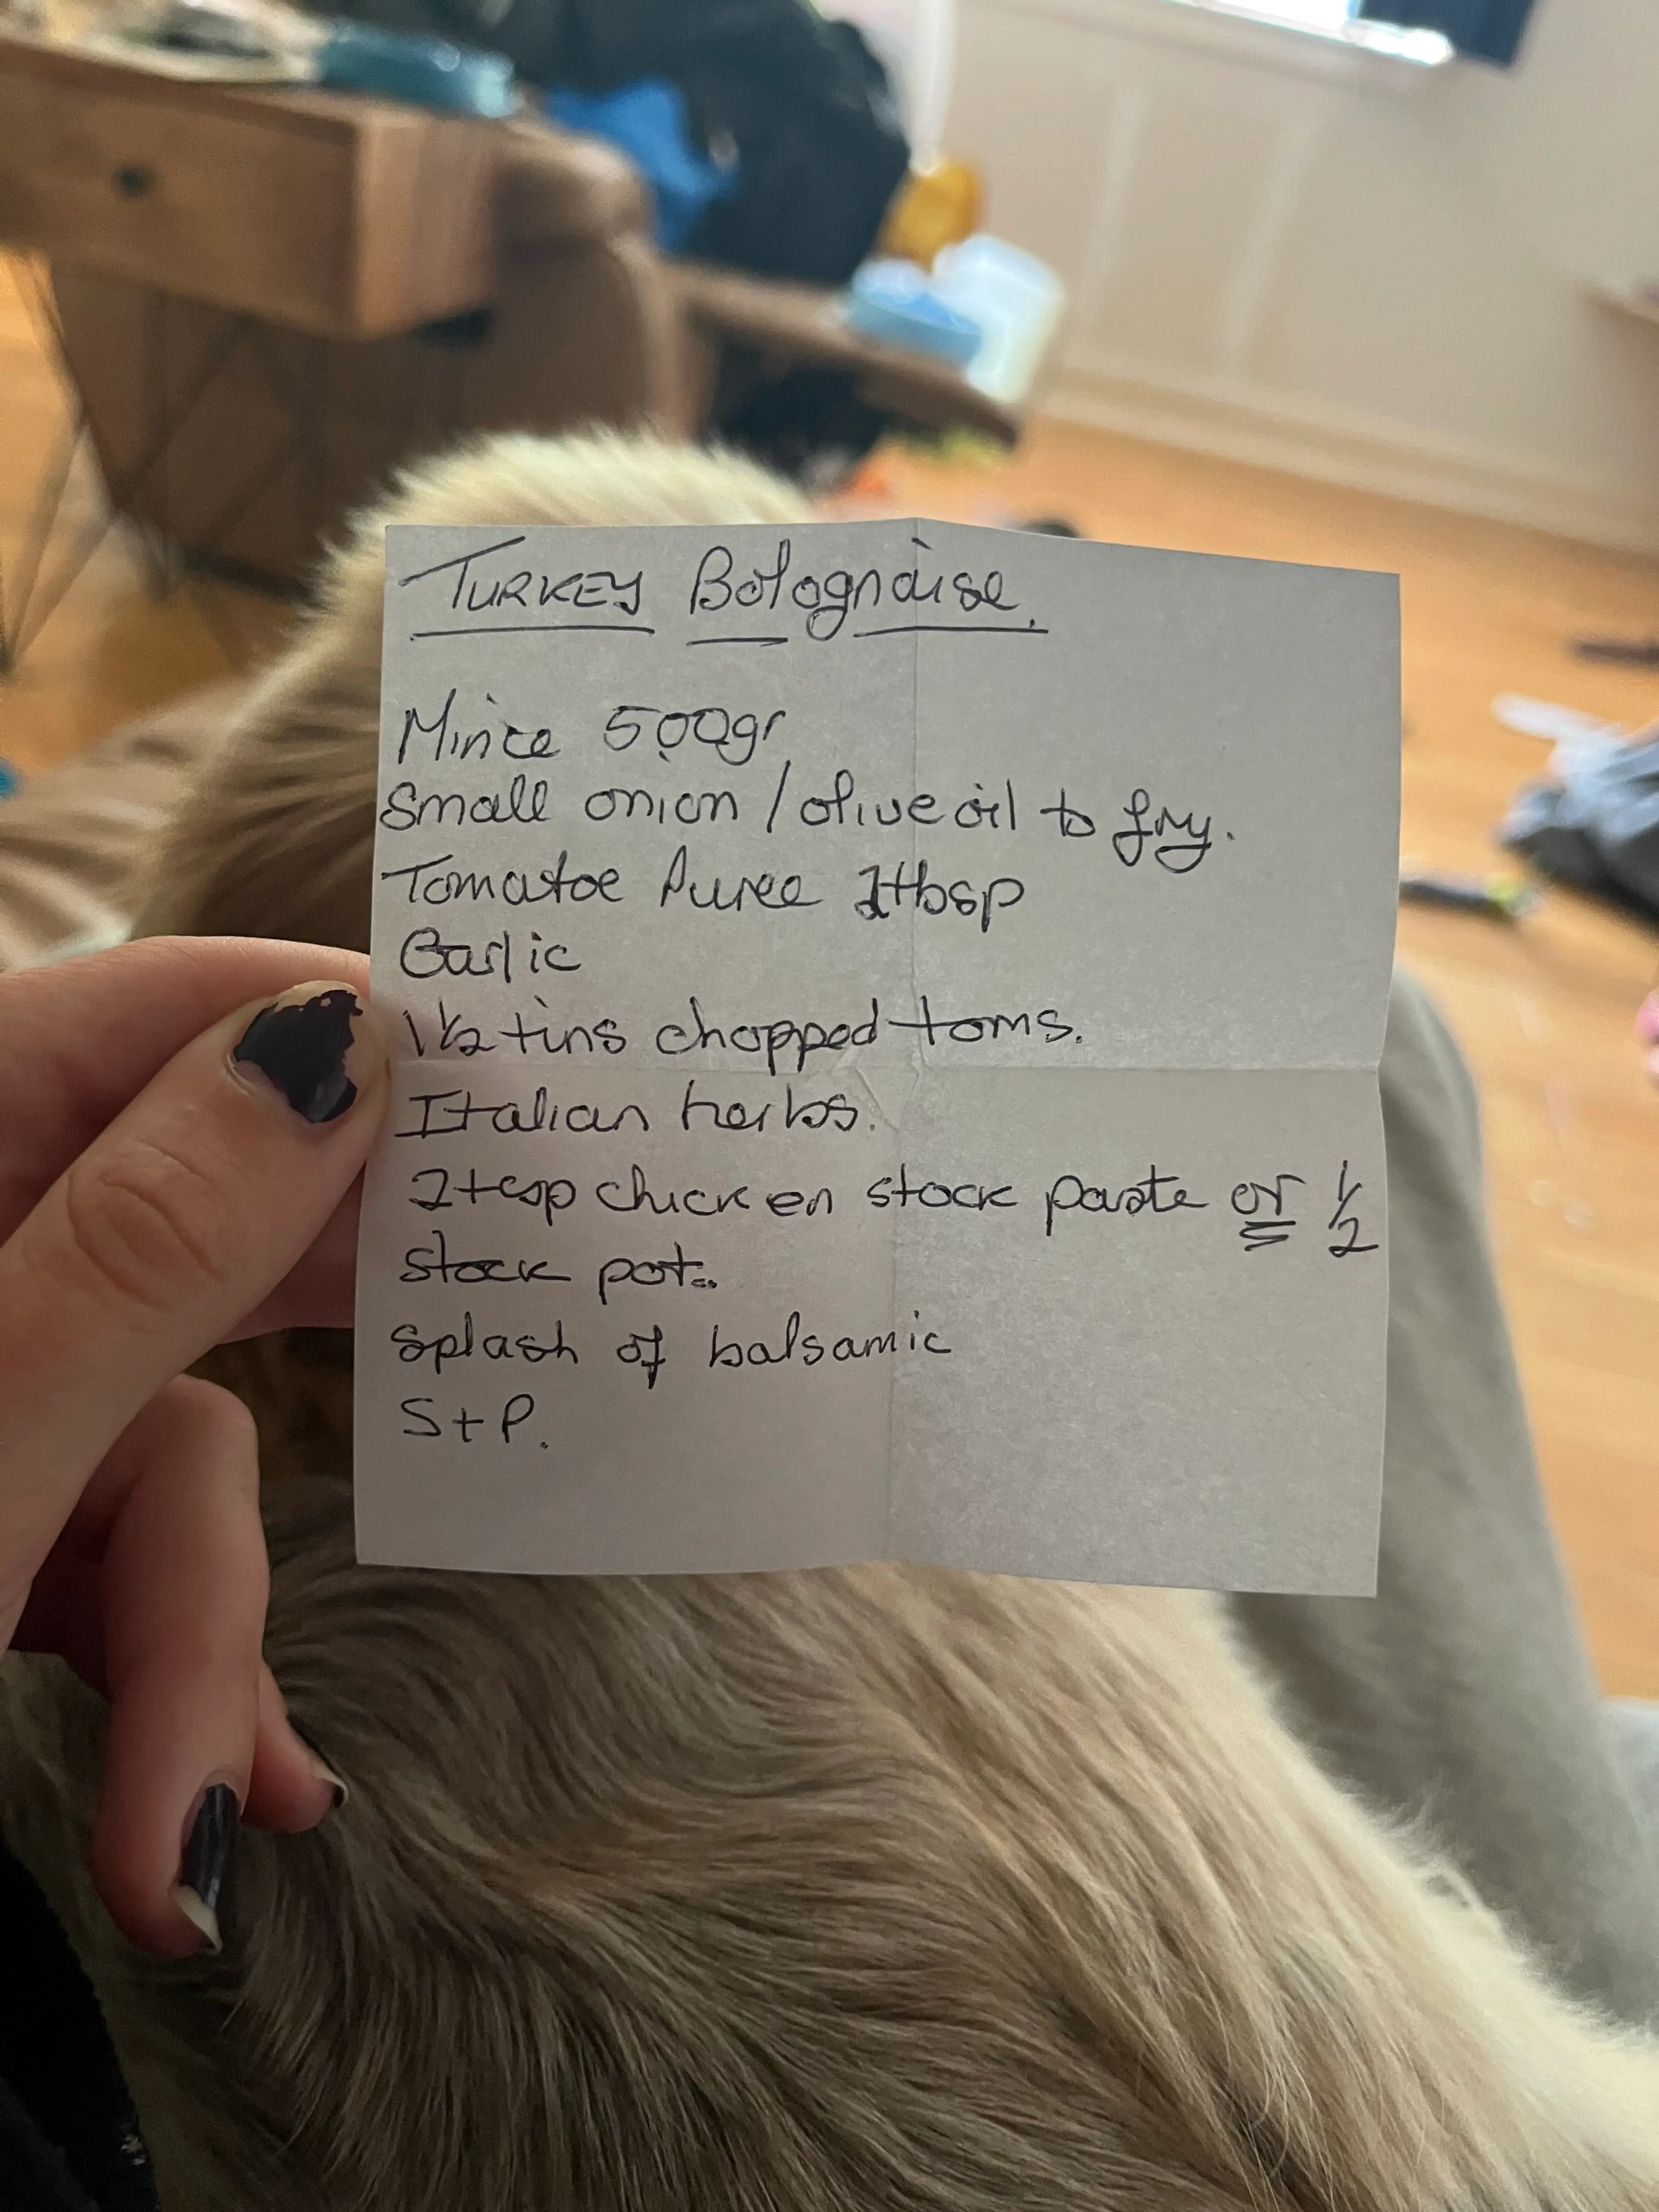 TURKEY Bolognaise.
Mince 500gr
Small onion / olive oil to fry.
Tomatoe Puree 2tbsp
Garlic
1 1/2 tins chopped toms.
Italian herbs.
2tsp chicken stock paste or 1/2
stock pot..
Splash of balsamic
S+P.